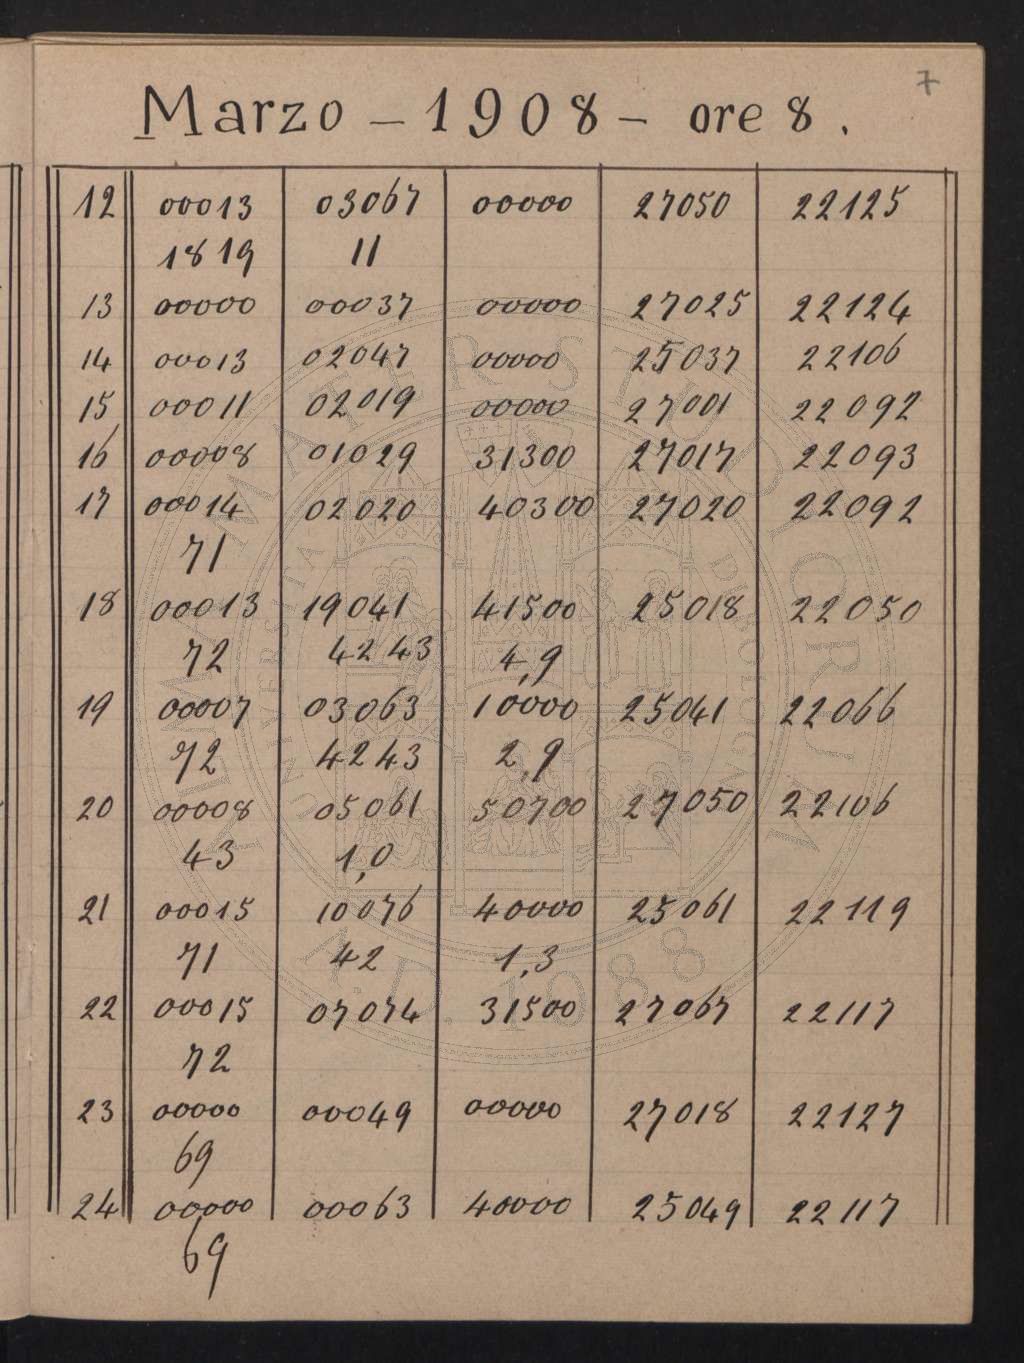 7
Marzo – 1908 – ore 8.
12 00013 03067 00000 27050 22125
1819 11
13 00000 00037 00000 27025 22124
14 00013 02047 00000 25037 22106
15 00011 02019 00000 27001 22092
16 00008 01029 31300 27017 22093
17 00014 02020 40300 27020 22092
71
18 00013 19041 41500 25018 22050
72 4243 4,9
19 00007 03063 10000 25041 22066
72 4243 2,9
20 00008 05061 50700 27050 22106
43 1,0
21 00015 10076 40000 25061 22119
71 42 1,3
22 00015 07074 31500 27067 22117
72
23 00000 00049 00000 27018 22127
69
24 00000 00063 40000 25049 22117
69
ALMA MATER STUDIORUM
A.D. 1088